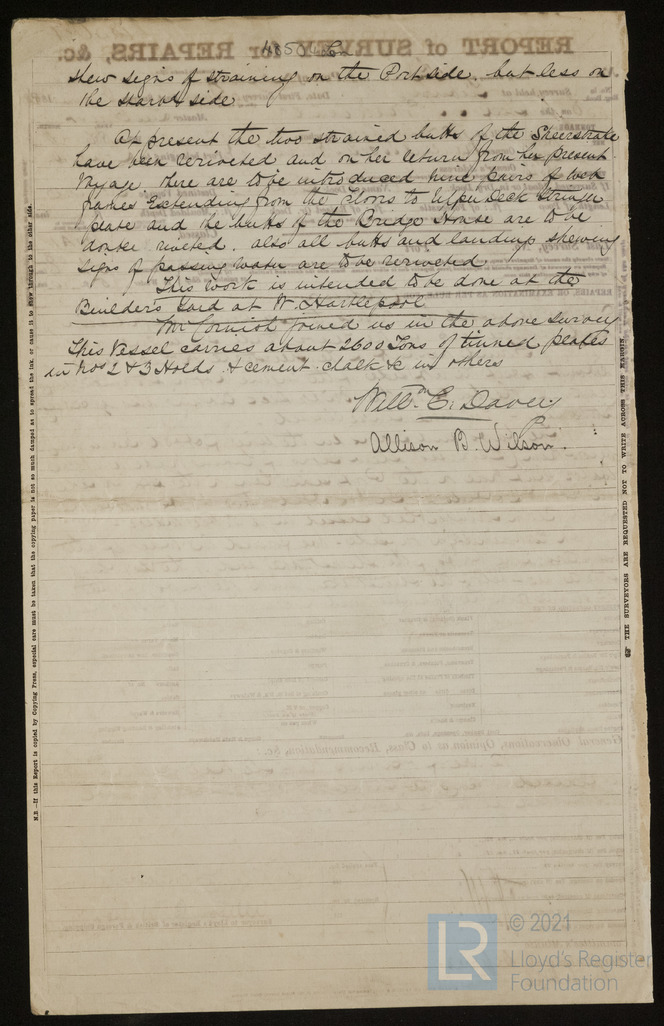 48504
shew signs of straining on the Port side but less on
the starbd side
At present the two strained butts of the Sheerstrake
have been rerivetted and on her return from her present
Voyage there are to be introduced nine pairs of web
frames extending from the Floors to Upper Deck Stringer
plate and the butts of the Bridge House are to be
double rivetted. also all butts and landings shewing
signs of passing water are to be rerivetted
This work is intended to be done at the
Builders Yard at W. Hartlepool
Mr Cornish joined us in the above survey
This Vessel carries about 2600 Tons of tinned plates
in Nos 2 & 3 Holds & cement chalk &c in others
Willm. E. Davey
Allison B. Wilson.
N.B.—If this Report is copied by Copying Press, especial care must be taken that the copying paper is not so much damped as to spread the ink, or cause it to show through to the other side.
THE SURVEYORS ARE REQUESTED NOT TO WRITE ACROSS THIS MARGIN.
REPORT of SURVEY for REPAIRS, &c.
General Observations, Opinion as to Class, Recommendation, &c.:
LR
© 2021
Lloyd's Register
Foundation